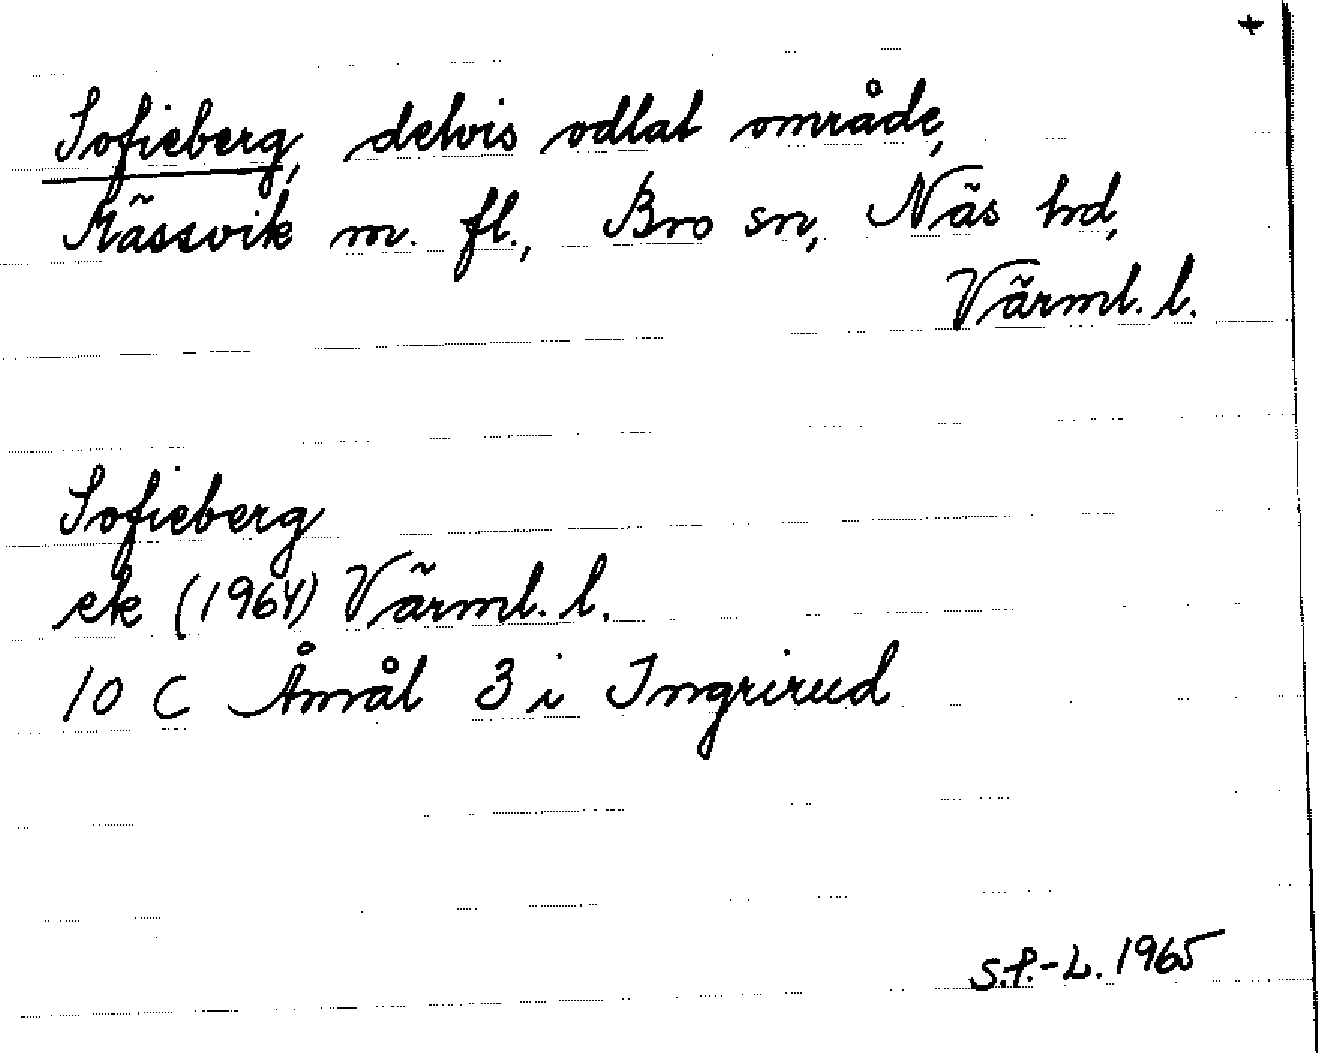 +
Sofieberg, delvis odlat område,
Mässvik m. fl., Bro sn, Näs hd,
Värml. l.
Sofieberg
ek (1964) Värml. l.
10 C Åmål 3 i Ingrirud
S.P.-L. 1965